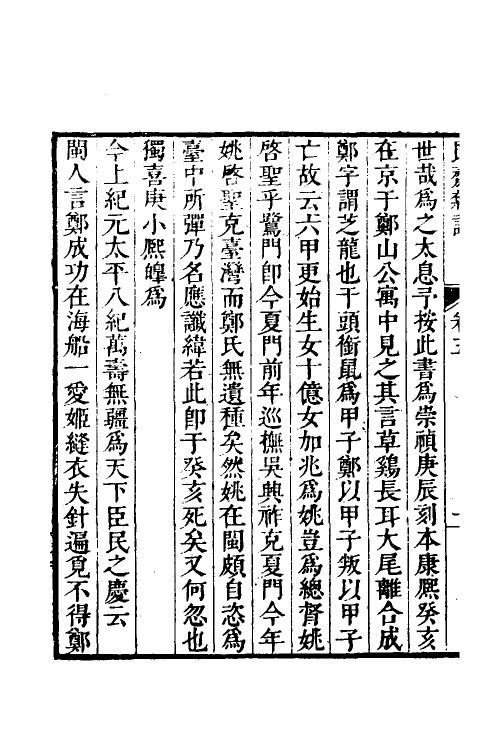 世哉爲之太息予按此書爲崇禎庚辰刻本康熙癸亥
在京于鄭山公寓中見之其言草鷄長耳大尾離合成
鄭字謂芝龍也干頭銜鼠爲甲子鄭以甲子叛以甲子
亡故云六甲更始生女十億女加兆爲姚豈爲總督姚
啓聖乎鷺門卽今夏門前年巡撫吳興祚克夏門今年
姚啓聖克臺灣而鄭氏無遺種矣然姚在閩頗自恣爲
臺中所彈乃名應讖緯若此卽于癸亥死矣又何忽也
獨喜庚小熙皥爲
今上紀元太平八紀萬壽無疆爲天下臣民之慶云
閩人言鄭成功在海船一愛姬縫衣失針遍覓不得鄭